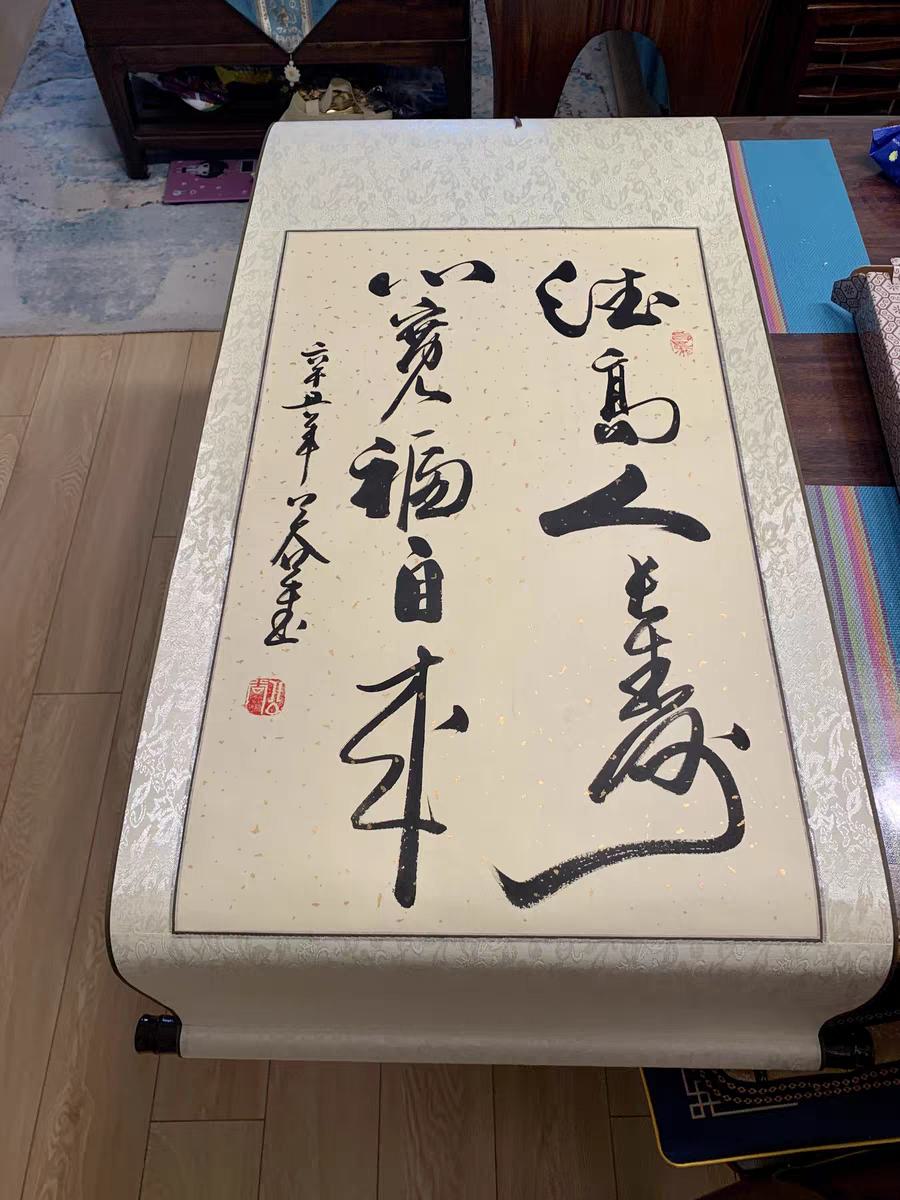 德高人长寿
心宽福自来
辛丑年